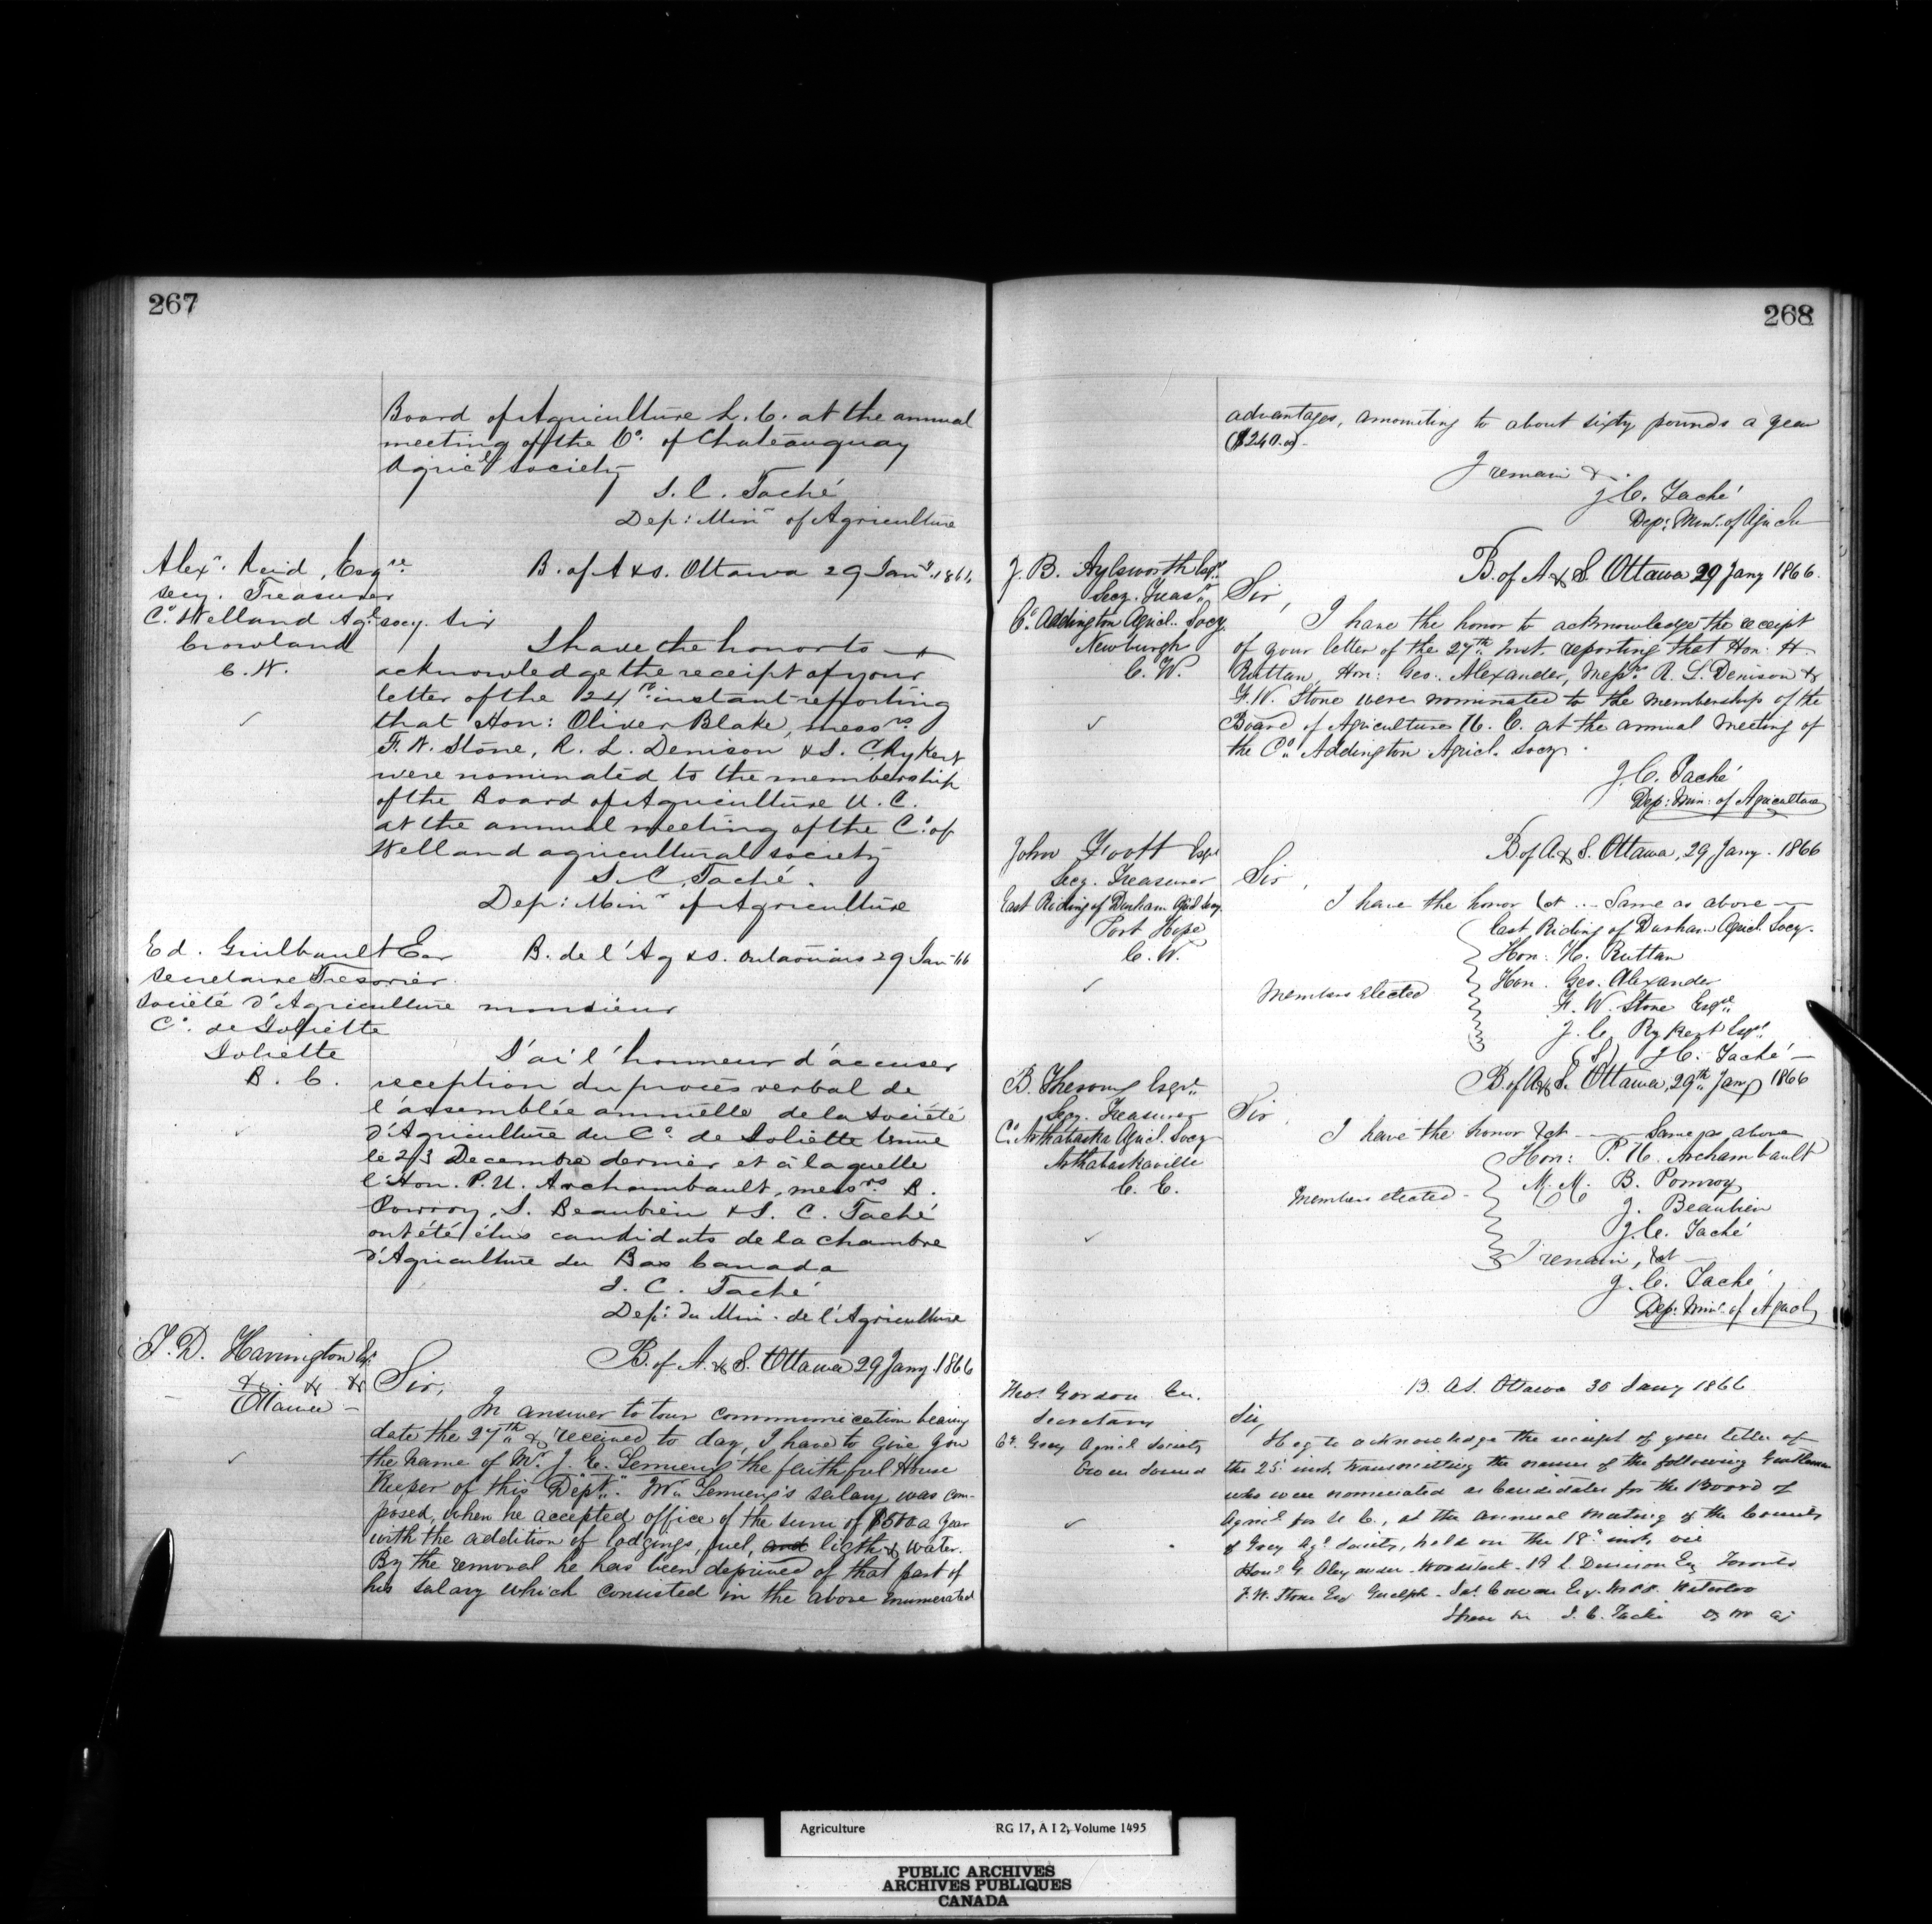 267
Board of Agriculture L. C. at the annual
meeting of the Co. of Chateauguay
Agricl society
J. C. Taché
Dep: Minr of Agriculture
Alexr. Reid, Esqre
secy. Treasurer
Co. Welland Agl. socy.
Crowland
C. W.
B. of A & S. Ottawa 29 Jany. 1866
Sir
I have the honor to
acknowledge the receipt of your
letter of the 24th instant reporting
that Hon: Oliver Blake, messrs
F. W. Stone, R. L. Denison & J. C. Rykert
were nominated to the membership
of the Board of Agriculture U. C.
at the annual meeting of the Co. of
Welland agricultural society
J. C. Taché.
Dep: Minr of Agriculture
Ed. Guilbault Esr
Secretaire Tresorier
Société d'Agriculture
Co. de Joliette
Joliette
B. C.
B. de l'Ag & S. Outaouais 29 Jan 66
monsieur
J'ai l'honneur d'accuser
reception du procès verbal de
l'assemblée annuelle de la Société
d'Agriculture du Co. de Joliette tenue
le 23 Decembre dernier et à laquelle
l'Hon. P. U. Archambault, messrs B.
Pomroy, J. Beaubien & J. C. Taché
ont été élus candidats de la chambre
d'Agriculture du Bas Canada
J. C. Taché
Dep: du Min. de l'Agriculture
T. D. Harrington Esqr
& & &
Ottawa
B. of A. & S. Ottawa 29 Jany. 1866
Sir,
In answer to your communication bearing
date the 27th & received to day, I have to give you
the name of Mr. J. E. Lemieux the faithful House
Keeper of this Dept. Mr. Lemieux's salary was com-
posed, when he accepted office of the sum of $500 a year
with the addition of lodgings, fuel, and light & water.
By the removal he has been deprived of that part of
his salary which consisted in the above enumerated
268
advantages, amounting to about sixty pounds a year
($240.00).
I remain &.
J. C. Taché
Dep: Minr. of Agricltr
J. B. Aylsworth Esqr.
Secy. Treasr.
Co. Addington Agricl. Socy.
Newburgh
C. W.
B. of A & S. Ottawa 29 Jany 1866.
Sir,
I have the honor to acknowledge the receipt
of your letter of the 27th Inst. reporting that Hon: H.
Ruttan, Hon: Geo: Alexander, Messrs. R. L. Denison &
F. W. Stone were nominated to the membership of the
Board of Agriculture U. C. at the annual meeting of
the Co. Addington Agricl. Socy.
J. C. Taché
Dep: Min: of Agriculture
John Foott Esqr
Secy. Treasurer
East Riding of Durham Agricl Socy.
Port Hope
C. W.
B. of A. & S. Ottawa, 29 Jany. 1866
Sir,
I have the honor &ct ... Same as above
East Riding of Durham Agricl. Socy.
Members elected
Hon: H. Ruttan
Hon. Geo. Alexander
F. W. Stone Esqre
J. C. Rykert Esqre.
(S) J. C. Taché
B. Theroux Esqre.
Secy. Treasurer
Co. Arthabaska Agricl. Socy
Arthabaskaville
C. E.
B. of A & S. Ottawa, 29th Jany 1866
Sir,
I have the honor &ct Same as above
Members elected
Hon: P. U. Archambault
M. M. B. Pomroy
J. Beaubien
J. C. Taché
I remain, &ct
J. C. Taché,
Dep: Minr. of Agricl
Thos. Gordon Esq.
Secretary
Co. Grey Agricl Society
Owen Sound
B. A S. Ottawa 30 Jany 1866
Sir,
I beg to acknowledge the receipt of your letter of
the 25 inst, transmitting the names of the following Gentlemen
who were nominated as Candidates for the Board of
Agricl for U C., at the annual meeting of the County
of Grey Agl Society, held on the 18 inst, viz
Honl G. Alexander Woodstock. R L Denison Esq Toronto
F. W. Stone Esq Guelph. Jas. Cowan Esq. M.P.P. Waterloo
J. C. Taché
Agriculture
RG 17, A I 2, Volume 1495
PUBLIC ARCHIVES
ARCHIVES PUBLIQUES
CANADA